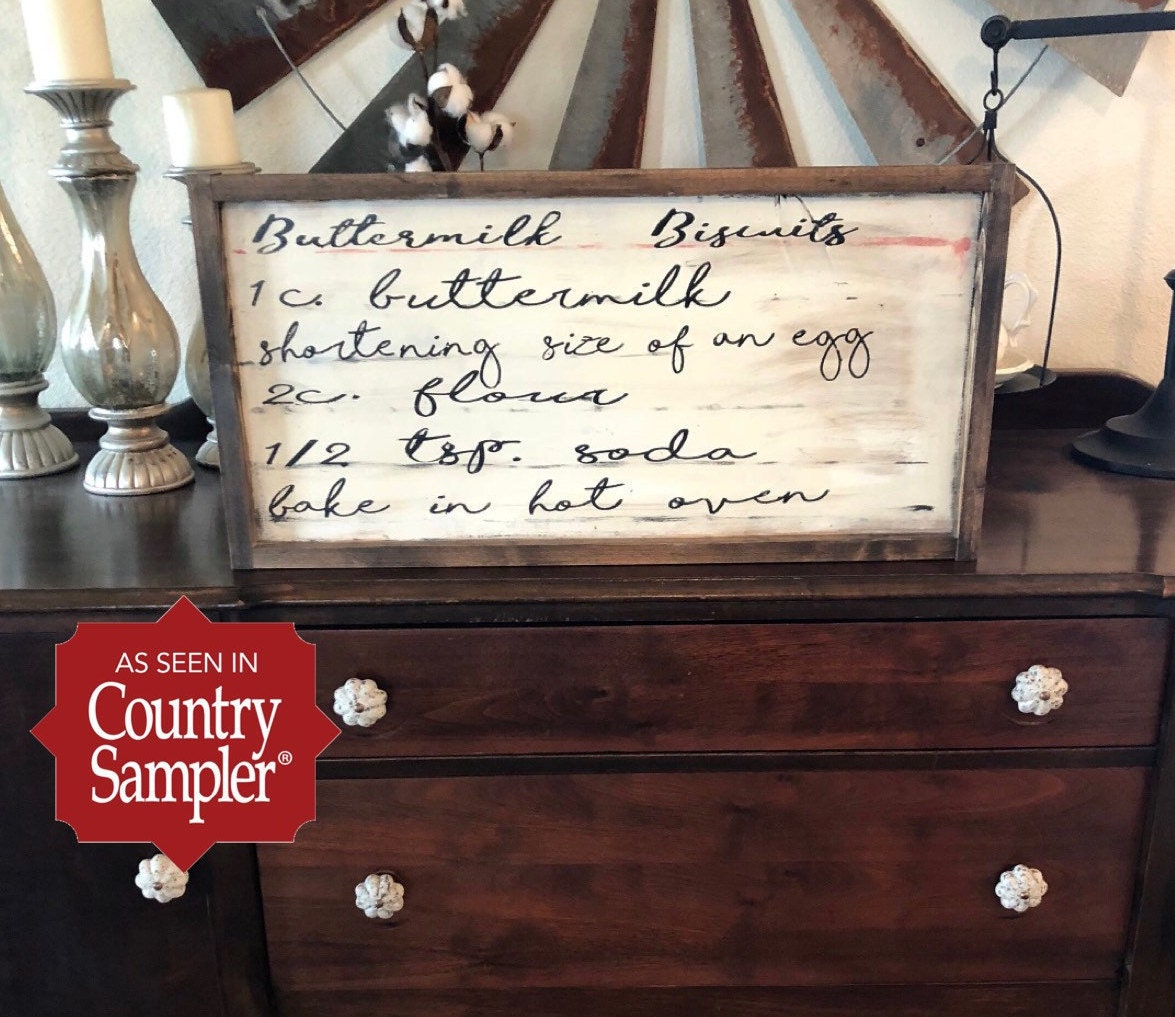 Buttermilk Biscuits
1 c. buttermilk
shortening size of an egg
2c. flour
1/2 tsp. soda
bake in hot oven
AS SEEN IN
Country
Sampler®